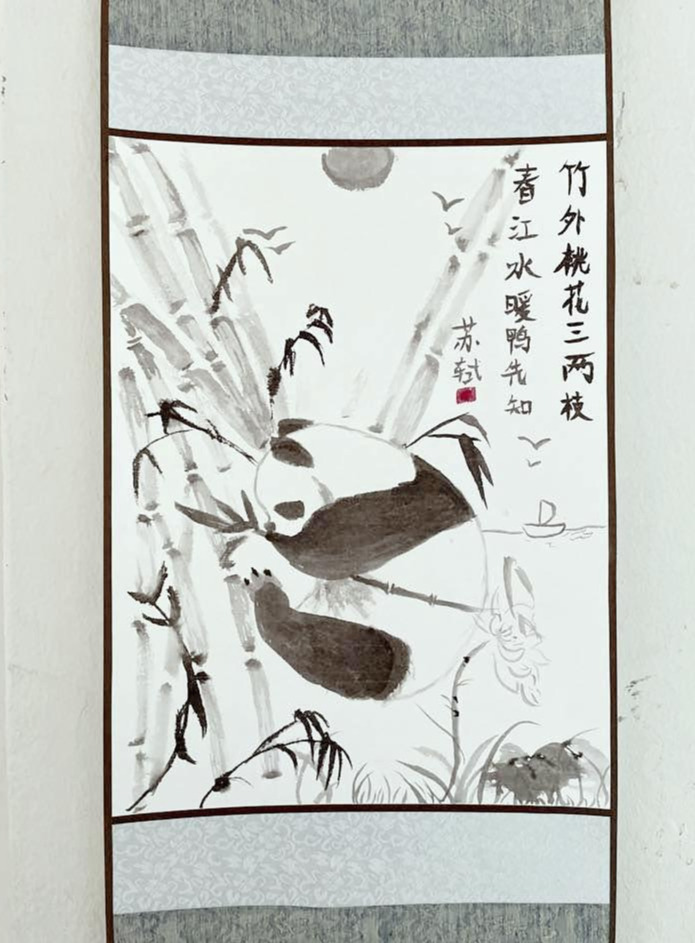 竹外桃花三两枝
春江水暖鸭先知
苏轼